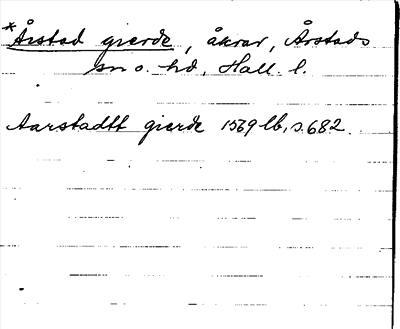 *Årstad gierde, åkrar, Årstads
sn o. hd, Hall. l.
Aarstadtt gierde 1569 lb, s. 682.